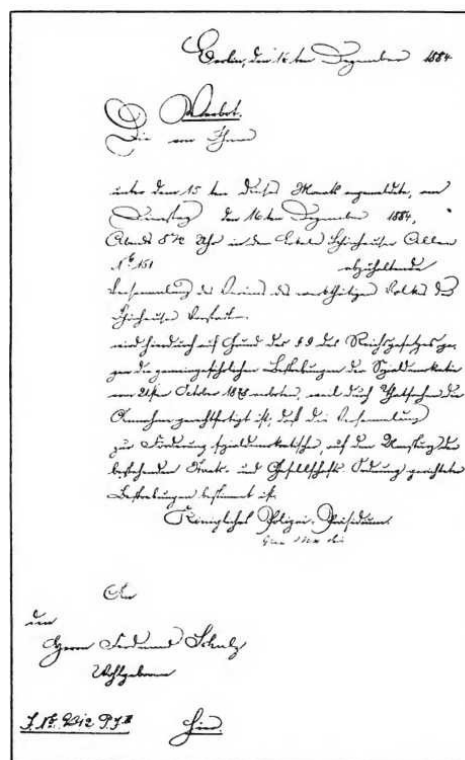 Berlin, den 16ten Dezember 1884.
Verbot.
Die von Ihnen
unter dem 15ten dieses Monats angemeldete, am
Dienstag den 16ten Dezember 1884,
Abends 8½ Uhr in dem Lokale Schönhauser Allee
No 161 abzuhaltende
Versammlung des Vereins des werkthätigen Volkes der
Schönhauser Vorstadt
wird hierdurch auf Grund des § 9 des Reichsgesetzes ge-
gen die gemeingefährlichen Bestrebungen der Sozialdemokratie
vom 21ten October 1878 verboten, weil durch Thatsachen die
Annahme gerechtfertigt ist, daß die Versammlung
zur Förderung sozialdemokratischer, auf den Umsturz der
bestehenden Staats- und Gesellschafts-Ordnung gerichteter
Bestrebungen bestimmt ist.
Königliches Polizei-Präsidium.
An
den
Herrn Ferdinand Schulz
Wohlgeboren
Hier.